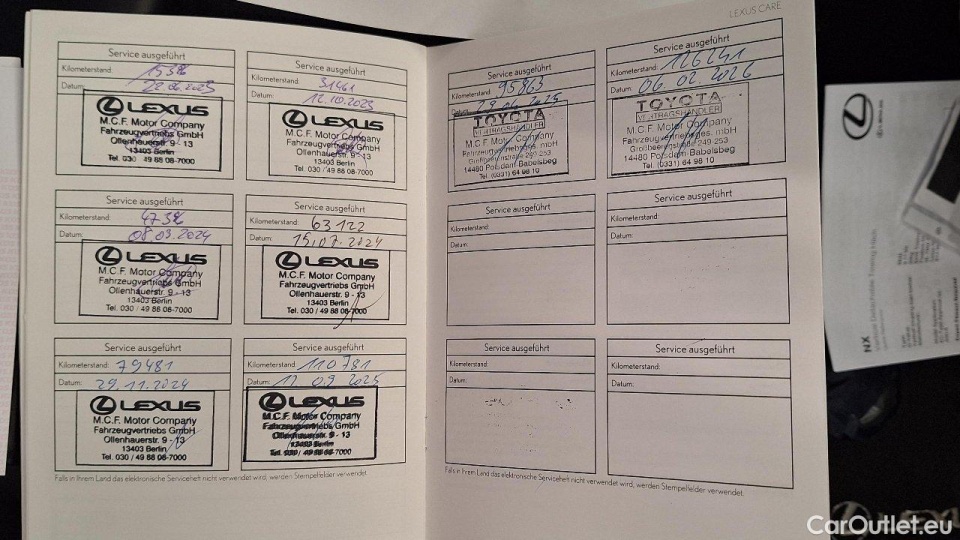 LEXUS CARE
Service ausgeführt
Kilometerstand:
Datum: 22.06.2023
LEXUS
M.C.F. Motor Company
Fahrzeugvertriebs GmbH
Ollenhauerstr. 9 - 13
13403 Berlin
Tel. 030 / 49 88 08-7000
Service ausgeführt
Kilometerstand: 31461
Datum: 12.10.2023
LEXUS
M.C.F. Motor Company
Fahrzeugvertriebs GmbH
Ollenhauerstr. 9 - 13
13403 Berlin
Tel. 030 / 49 88 08-7000
Service ausgeführt
Kilometerstand:
Datum: 08.03.2024
LEXUS
M.C.F. Motor Company
Fahrzeugvertriebs GmbH
Ollenhauerstr. 9 - 13
13403 Berlin
Tel. 030 / 49 88 08-7000
Service ausgeführt
Kilometerstand: 63122
Datum: 15.07.2024
LEXUS
M.C.F. Motor Company
Fahrzeugvertriebs GmbH
Ollenhauerstr. 9 - 13
13403 Berlin
Tel. 030 / 49 88 08-7000
Service ausgeführt
Kilometerstand: 79481
Datum: 29.11.2024
LEXUS
M.C.F. Motor Company
Fahrzeugvertriebs GmbH
Ollenhauerstr. 9 - 13
13403 Berlin
Tel. 030 / 49 88 08-7000
Service ausgeführt
Kilometerstand: 110781
Datum: 11.09.2025
LEXUS
M.C.F. Motor Company
Fahrzeugvertriebs GmbH
Ollenhauerstr. 9 - 13
13403 Berlin
Tel. 030 / 49 88 08-7000
Falls in Ihrem Land das elektronische Serviceheft nicht verwendet wird, werden Stempelfelder verwendet.
Service ausgeführt
Kilometerstand: 95863
Datum: 29.04.2025
TOYOTA
VERTRAGSHÄNDLER
M.C.F. Motor Company
Fahrzeugvertriebsges. mbH
Großbeerenstraße 249-253
14480 Potsdam Babelsberg
Tel. (0331) 64 98 10
Service ausgeführt
Kilometerstand: 126241
Datum: 06.02.2026
TOYOTA
VERTRAGSHÄNDLER
M.C.F. Motor Company
Fahrzeugvertriebsges. mbH
Großbeerenstraße 249-253
14480 Potsdam Babelsberg
Tel. (0331) 64 98 10
Service ausgeführt
Kilometerstand:
Datum:
Service ausgeführt
Kilometerstand:
Datum:
Service ausgeführt
Kilometerstand:
Datum:
Service ausgeführt
Kilometerstand:
Datum:
Falls in Ihrem Land das elektronische Serviceheft nicht verwendet wird, werden Stempelfelder verwendet.
NX
LEXUS
CarOutlet.eu